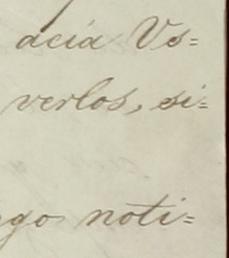 acia Vs=
verlos, si=
go noti=